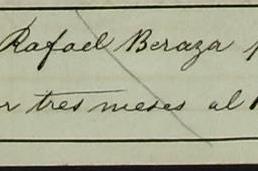 Rafael Beraza
tres meses al